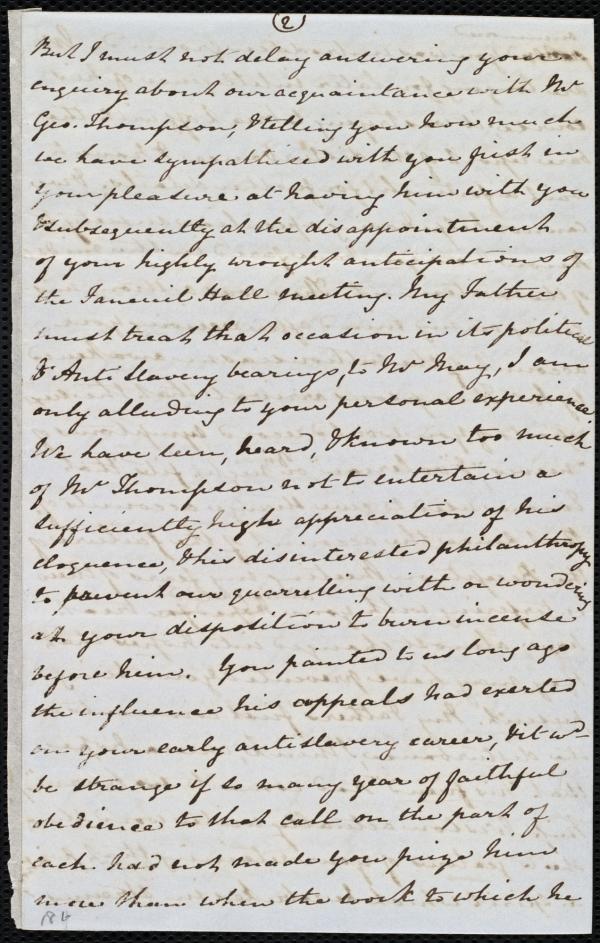 (2)
But I must not delay answering your
enquiry about our acquaintance with Mr
Geo. Thompson, & telling you how much
we have sympathised with you first in
your pleasure at having him with you
& subsequently at the disappointment
of your highly wrought anticipations of
the Faneuil Hall meeting. My Father
must treat that occasion in its political
& Anti Slavery bearings, to Mr May, I am
only alluding to your personal experience.
We have seen, heard, & known too much
of Mr Thompson not to entertain a
sufficiently high appreciation of his
eloquence, & his disinterested philanthropy
to prevent our quarrelling with or wondering
at your disposition to burn incense
before him. You painted to us long ago
the influence his appeals had exerted
on your early antislavery career, & it wd
be strange if so many year of faithful
obedience to that call on the part of
each had not made you prize him
more than when the work to which he